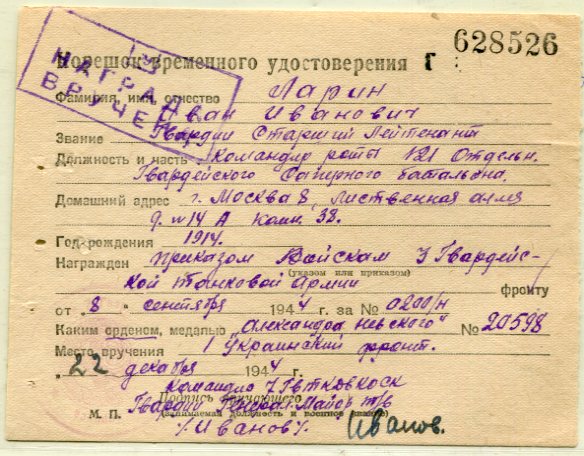 Корешок временного удостоверения Г 628526
НАГРАДА
ВРУЧЕНА
Фамилия, имя, отчество Ларин
Иван Иванович
Звание Гвардии Старший Лейтенант
Должность и часть Командир роты 121 Отдельн.
Гвардейского Саперного батальона.
Домашний адрес г. Москва 8, Лиственная аллея
д. №14 А комн. 38.
Год рождения 1914г.
Награжден приказом Войскам 3 Гвардейс-
(указом или приказом)
кой танковой Армии фронту
от "8" сентября 1944 г. за № 0200/н
Каким орденом, медалью "Александра Невского" № 20598
Место вручения 1 Украинский фронт.
"22" декабря 1944 г.
Подпись вручающего
Гвардии Генерал-Майор т/в
(занимаемая должность и военное звание)
М. П. /Иванов/. Иванов.